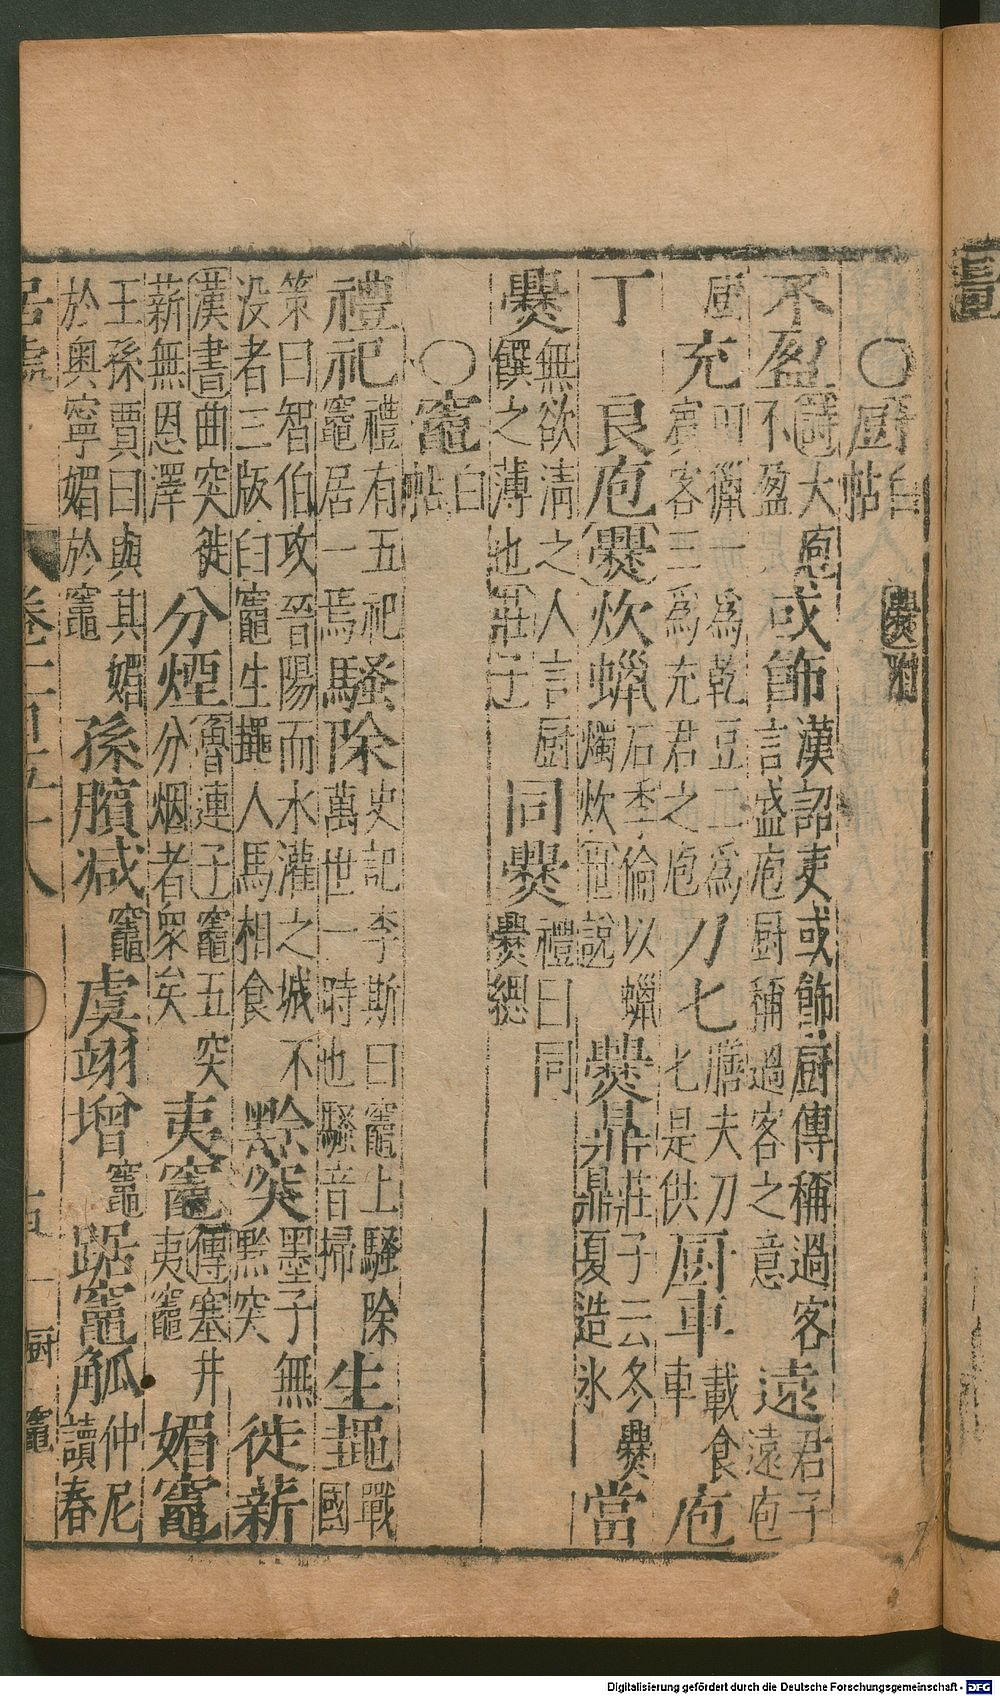 ○厨白帖爨附
不盈詩大庖不盈是或飾漢詔吏或飾厨傳稱過客言盛庖厨稱過客之意遠君子遠庖
厨充可獵一為乾豆二為賓客三為充君之庖刀匕膳夫刀匕是供厨車載食車庖
丁良庖爨炊蠟石季倫以蠟燭炊世說爨鼎莊子云冬爨鼎夏造冰當
爨無欲清之人言厨饌之薄也莊子同爨禮曰同爨緦
○竈白帖
禮祀禮有五祀竈居一焉騷除史記李斯曰竈上騷除萬世一時也騷音掃生鼃戰國
策曰智伯攻晉陽而水灌之城不没者三版臼竈生鼃人馬相食黔突墨子無黔突徙薪
漢書曲突徙薪無恩澤分煙魯連子竈五突分烟者衆矣夷竈傳塞井夷竈媚竈
王孫賈曰與其媚於奥寧媚於竈孫臏減竈虞翊增竈踞竈觚仲尼讀春
居處 卷二百五十八 五 厨 竈
Digitalisierung gefördert durch die Deutsche Forschungsgemeinschaft - DFG